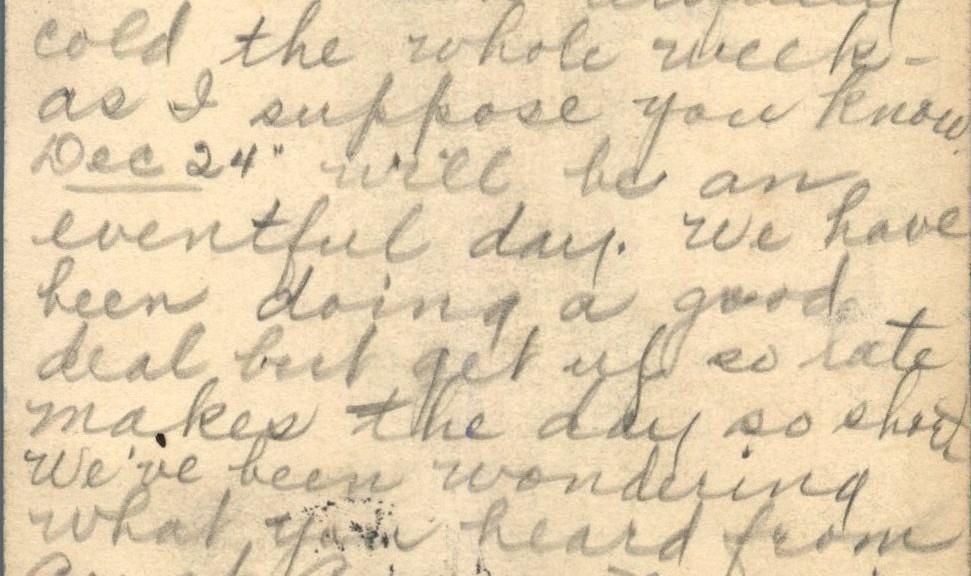 cold the whole week-
as I suppose you know.
Dec 24" will be an
eventful day. We have
been doing a good
deal but get up so late
makes the day so short
We've been wondering
what you heard from